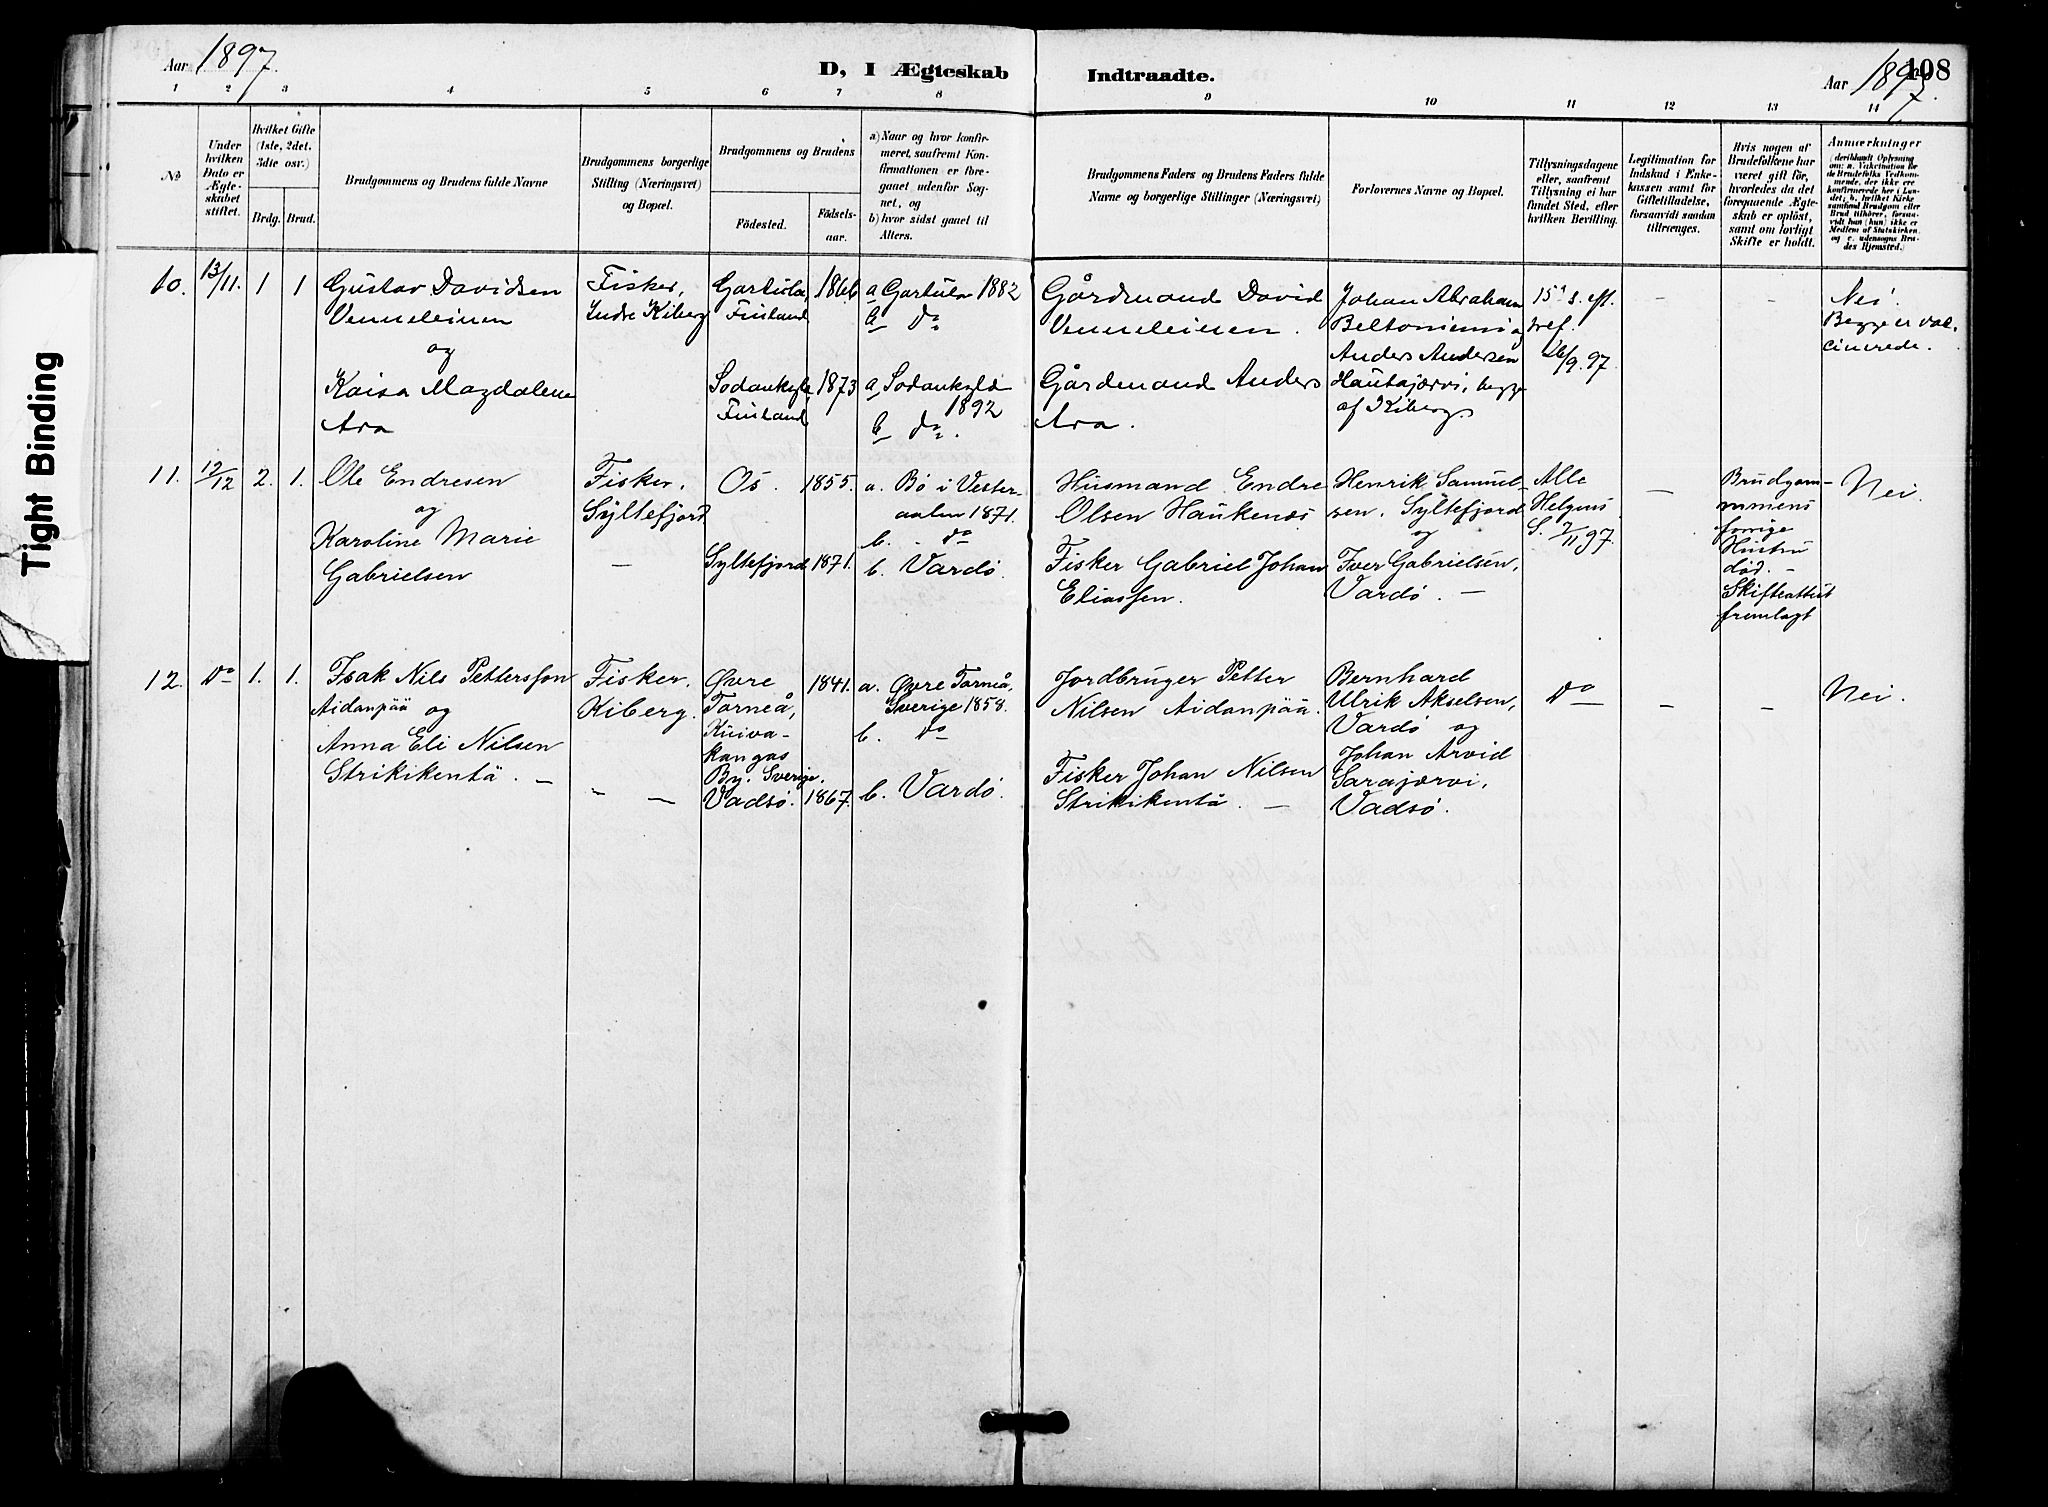 Tight Binding
Aar 1897.
D, I Ægteskab Indtraadte.
Aar 1897.
108
1 2 3 4 5 6 7 8 9 10 11 12 13 14
No
Under hvilken Dato er Ægteskabet stiftet.
Hvilket Gifte (1ste, 2det, 3dte osv.)
Brdg. Brud.
Brudgommens og Brudens fulde Navne
Brudgommens borgerlige Stilling (Næringsvei) og Bopæl.
Brudgommens og Brudens
Fødested. Fødselsaar.
a) Naar og hvor konfirmeret, saafremt Konfirmationen er foregaaet udenfor Sognet, og
b) hvor sidst gaaet til Alters.
Brudgommens Faders og Brudens Faders fulde Navne og borgerlige Stillinger (Næringsvei)
Forlovernes Navne og Bopæl.
Tillysningsdagene eller, saafremt Tillysning ei har fundet Sted, efter hvilken Bevilling.
Legitimation for Indskud i Enkekassen samt for Giftetilladelse, forsaavidt saadan tiltrænges.
Hvis nogen af Brudefolkene har været gift før, hvorledes da det foregaaende Ægteskab er opløst, samt om lovligt Skifte er holdt.
Anmærkninger
(deriblandt Oplysning om: a. Vakcination for de Brudefolks Vedkommende, der ikke ere konfirmerede her i Landet; b. hvilket Kirkesamfund Brudgom eller Brud tilhører, forsaavidt han (hun) ikke er Medlem af Statskirken, og c. udensogns Brudes Hjemsted.)
10. 13/11. 1 1
Gustav Davidsen
Venneleinen
og
Kaisa Magdalene
Ara
Fisker,
Indre Kiberg
Gartula,
Finland
1866
Sodankylæ
Finland
1873
a Gartula 1882
b do
a Sodankylæ
1892
b do.
Gårdmand David
Venneleinen.
Gårdmand Anders
Ara.
Johan Abraham
Beltoniemi og
Anders Andersen
Hautajærvi, begge
af Kiberg
15d s. eft.
tref.
26/9. 97.
–
–
Nei.
Begge er vac-
cinerede.
11. 12/12 2. 1.
Ole Endresen
og
Karoline Marie
Gabrielsen
Fisker.
Syltefjord
–
Os. 1855.
Syltefjord 1871.
a. Bø i Vester-
aalen 1871.
b. – do
b. Vardø.
Husmand Endre
Olsen Haukenæs
Fisker Gabriel Johan
Eliassen.
Henrik Samuel-
sen, Syltefjord
og
Iver Gabrielsen,
Vardø. –
Alle
Helgens
S. 7/11 97.
–
Brudgom-
mmens
forrige
Hustru
død. –
Skifteattest
fremlagt
Nei.
12. do 1. 1.
Isak Nils Pettersson
Aidanpää og
Anna Eli Nilsen
Strikikentä. –
Fisker.
Kiberg.
– –
Øvre
Torneå,
Kuiva-
kangas
By. Sverige.
1841.
Vadsø. 1867.
a. Øvre Torneå,
Sverige 1858.
b. do
b. Vardø.
Jordbruger Petter
Nilsen Aidanpää.
Fisker Johan Nilsen
Strikikentä. –
Bernhard
Ulrik Akselsen,
Vardø og
Johan Arvid
Sarajærvi,
Vadsø.
do
–
–
Nei.